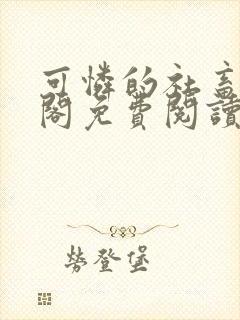 可憐的社畜
閣免費閱讀
勞登堡